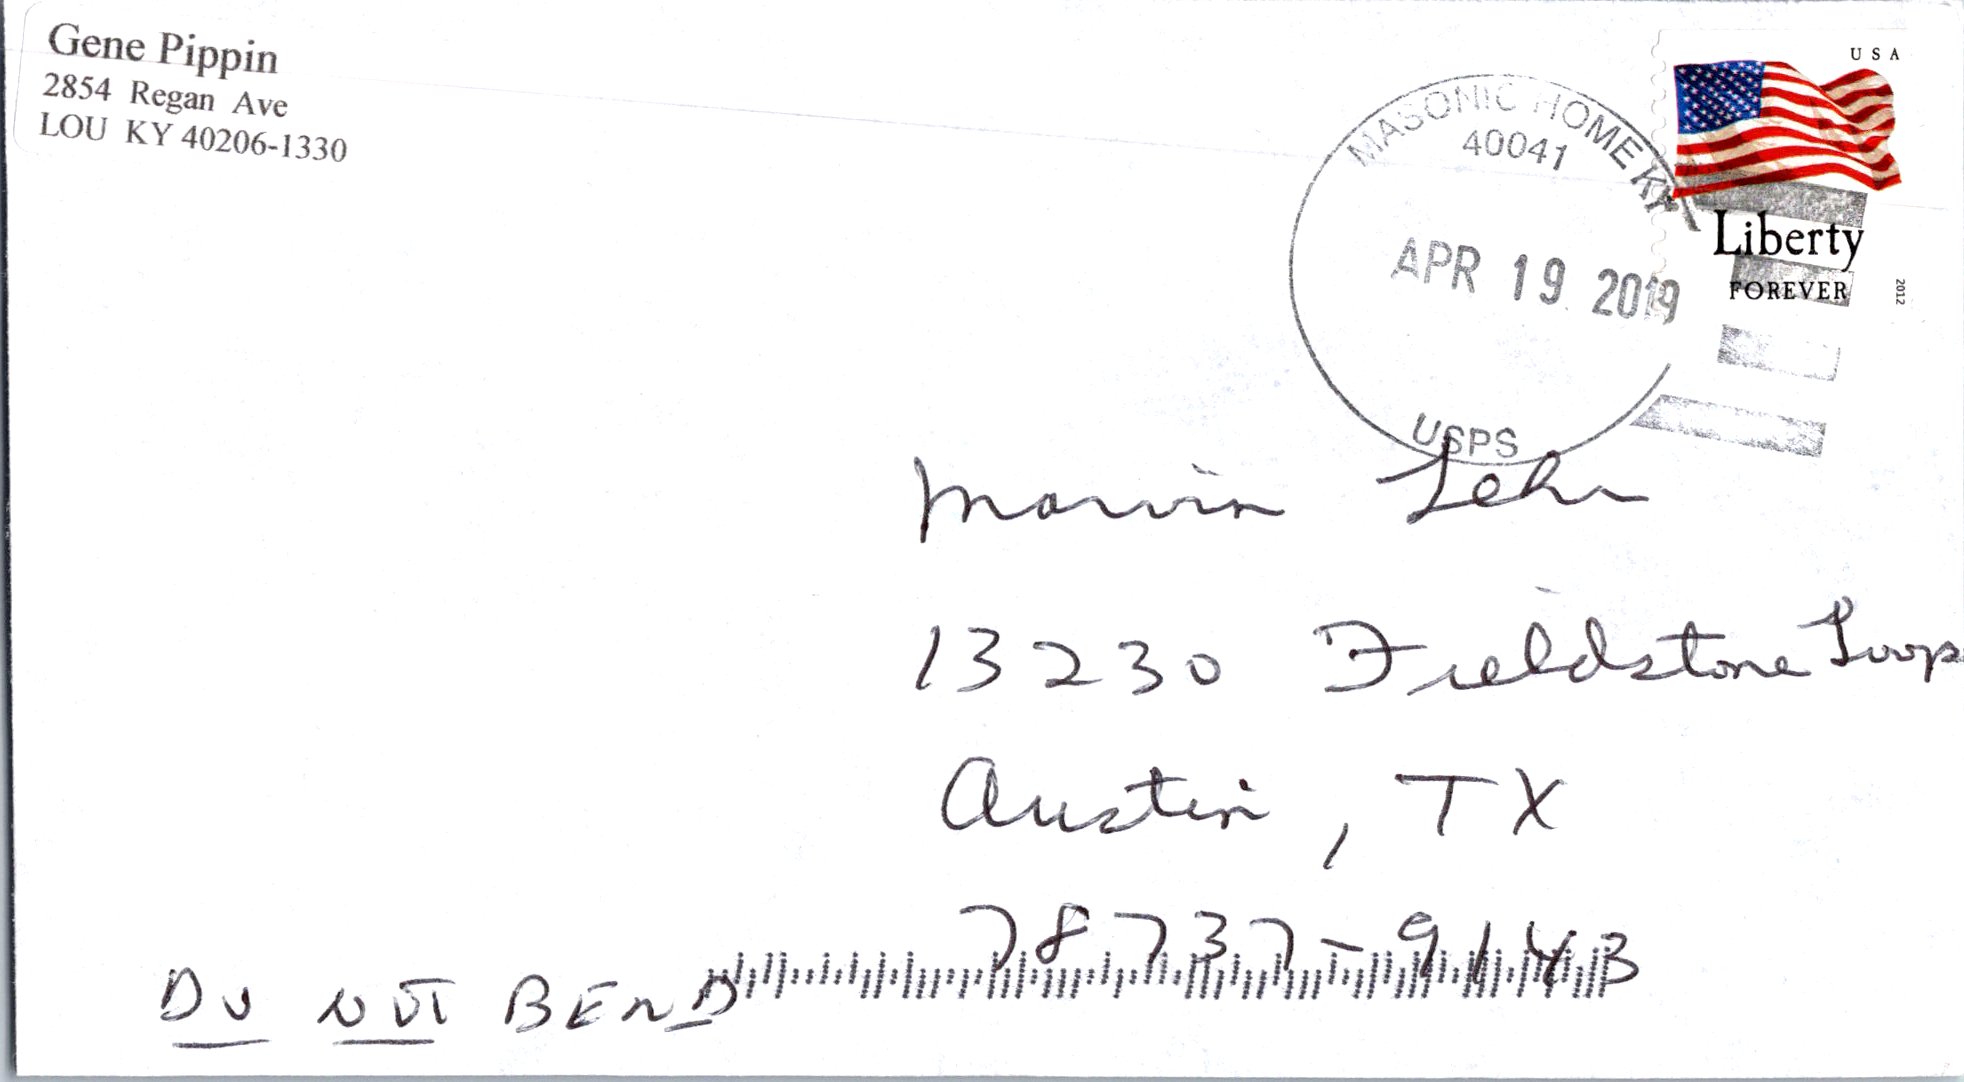 Gene Pippin
2854 Regan Ave
LOU KY 40206-1330
MASONIC HOME KY
40041
APR 19 2019
USPS
USA
Liberty
FOREVER
2012
Marvin Lehr
13230 Fieldstone Loop
Austin, TX
78737-9143
DO NOT BEND